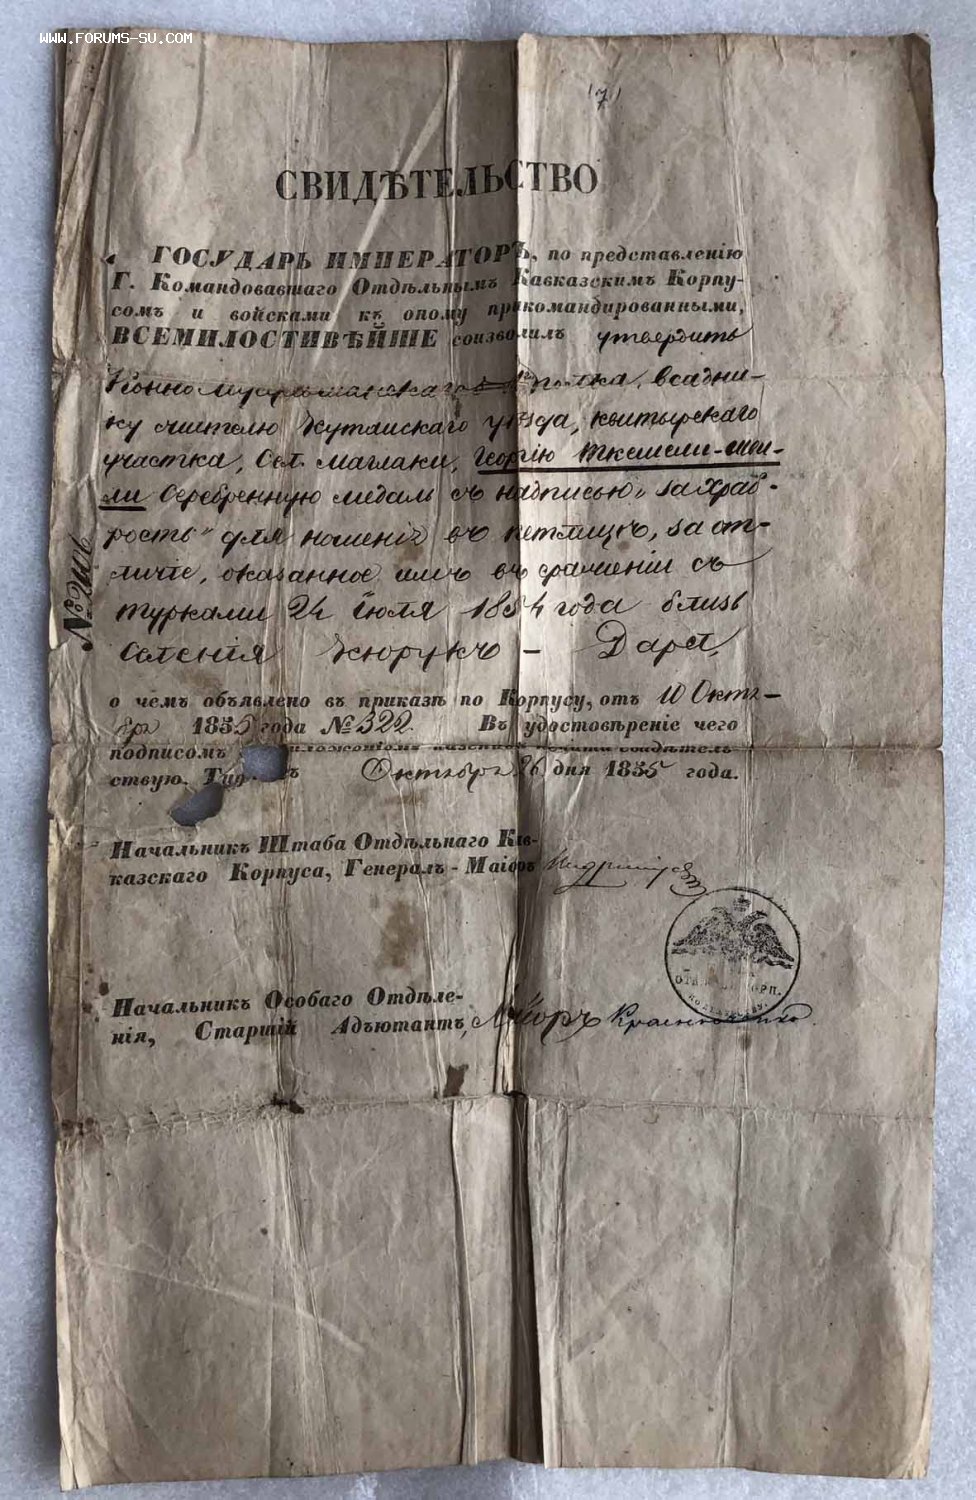 WWW.FORUMS-SU.COM
7
СВИДѢТЕЛЬСТВО
ГОСУДАРЬ ИМПЕРАТОРЪ, по представленію
Г. Командовавшаго Отдѣльнымъ Кавказскимъ Корпу-
сомъ и войсками къ оному прикомандированными,
ВСЕМИЛОСТИВѢЙШЕ соизволилъ утвердить
Конно мусульманскаго полка, всадни-
ку жителю Кутаискаго уѣзда,
участка, Сел. Маглаки, Георгію Ткешели-шви-
ли Серебренную медаль съ надписью „за храб-
рость" для ношенія въ петлицѣ, за от-
личіе, оказанное имъ въ сраженіи съ
турками 24 Іюля 1854 года близь
селенія Кюрукъ - Дара,
о чемъ объявлено въ приказѣ по Корпусу, отъ 10 Октя-
бря 1855 года № 322. Въ удостовѣреніе чего
подписомъ казенной печати свидѣтель-
ствую. Октября 26 дня 1855 года.
Начальникъ Штаба Отдѣльнаго Кав-
казскаго Корпуса, Генералъ-Маіоръ
Начальникъ Особаго Отдѣле-
нія, Старшій Адъютантъ, Маіоръ
ОТД. КОРП.